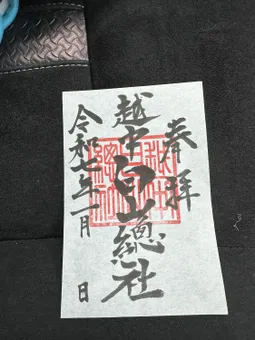 奉拝
越中白山總社
令和七年一月 日